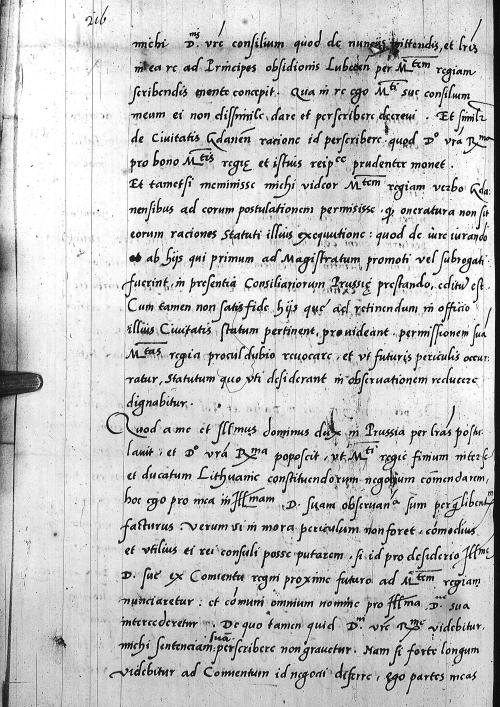 216
michi D. v͠re consilium quod de nunciis mittendis, et l͠ris
in ea re ad Principes obsidionis Lubecen̄ per M͠tem regiam
scribendis mente concepit. Qua in re ego M͠ti sue consilium
meum ei non dissimile, dare et perscribere decrevi. Et simil͠r
de Civitatis Gdanen̄ racione id perscribere quod D͠o v͠ra R͠ma
pro bono M͠tis regię et istius reip͠ce prudenter monet.
Et tametsi meminisse michi videor M͠tem regiam verbo Gda=
nensibus ad eorum postulationem permisisse, q͠ oneratura non sit
eorum raciones Statuti illius exequutione: quod de iure iurando
ab hijs qui primum ad Magistratum promoti vel subrogati
fuerint, in presentia Consiliariorum Prussię prestando, editū est.
Cum tamen non satis fide hijs que ad retinendum in officio
illius Civitatis statum pertinent, provideant. permissionem suā
M͠tas regia proculdubio revocare, et ut futuris periculis occur=
ratur, Statutum quo uti desiderant in observationem reducere
dignabitur.
Quod a me et Ill͠mus dominus dux in Prussia per l͠ras postu=
lavit, et D͠o v͠ra R͠ma poposcit, ut M͠ti regię finium inter se
et ducatum Lithuanie constituendorum negotium com̄endarem,
hoc ego pro mea in Ill͠mam D. suam observan͠a sum perq͠ libent͠
facturus. Verum si in mora periculum non foret, com̄odius
et utilius ei rei consuli posse putarem, si id pro desyderio Ill͠me
D. sue ex Conventu regni proxime futuro ad M͠tem regiam
nunciaretur: et com̄uni omnium nomine pro Ill͠ma D͠ne sua
intercederetur. De quo tamen quid D͠ni v͠re R͠me videbitur,
michi sentenciam suā perscribere non gravetur. Nam si forte longum
videbitur ad Conventum id negoci deferre, ego partes meas